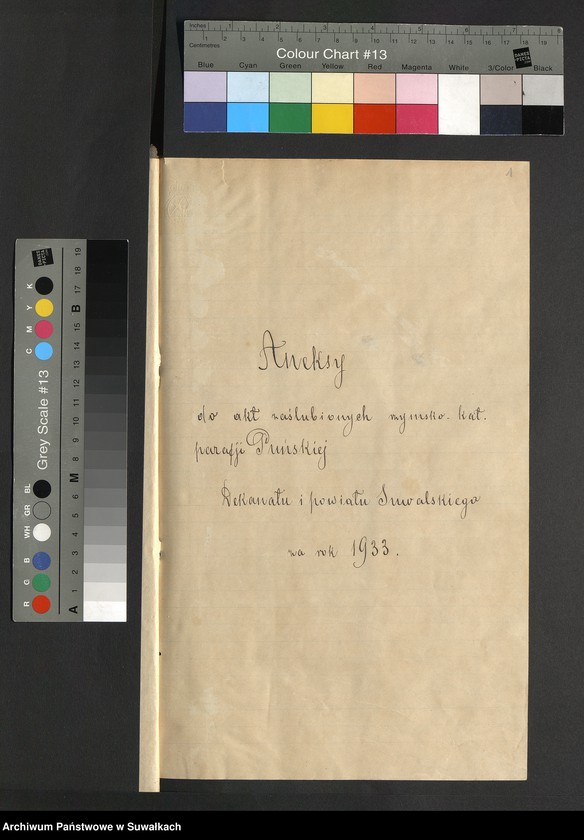 Inches 1 2 3 4 5 6 7 8
Centimetres 1 2 3 4 5 6 7 8 9 10 11 12 13 14 15 16 17 18 19
Colour Chart #13
Blue Cyan Green Yellow Red Magenta White 3/Color Black
1
Aneksy
do akt zaślubionych rzymsko-kat.
parafji Puńskiej
Dekanatu i powiatu Suwalskiego
za rok 1933.
Grey Scale #13
R G B WH GR BL C M Y K
A 1 2 3 4 5 6 M 8 9 10 11 12 13 14 15 B 17 18 19
Archiwum Państwowe w Suwałkach